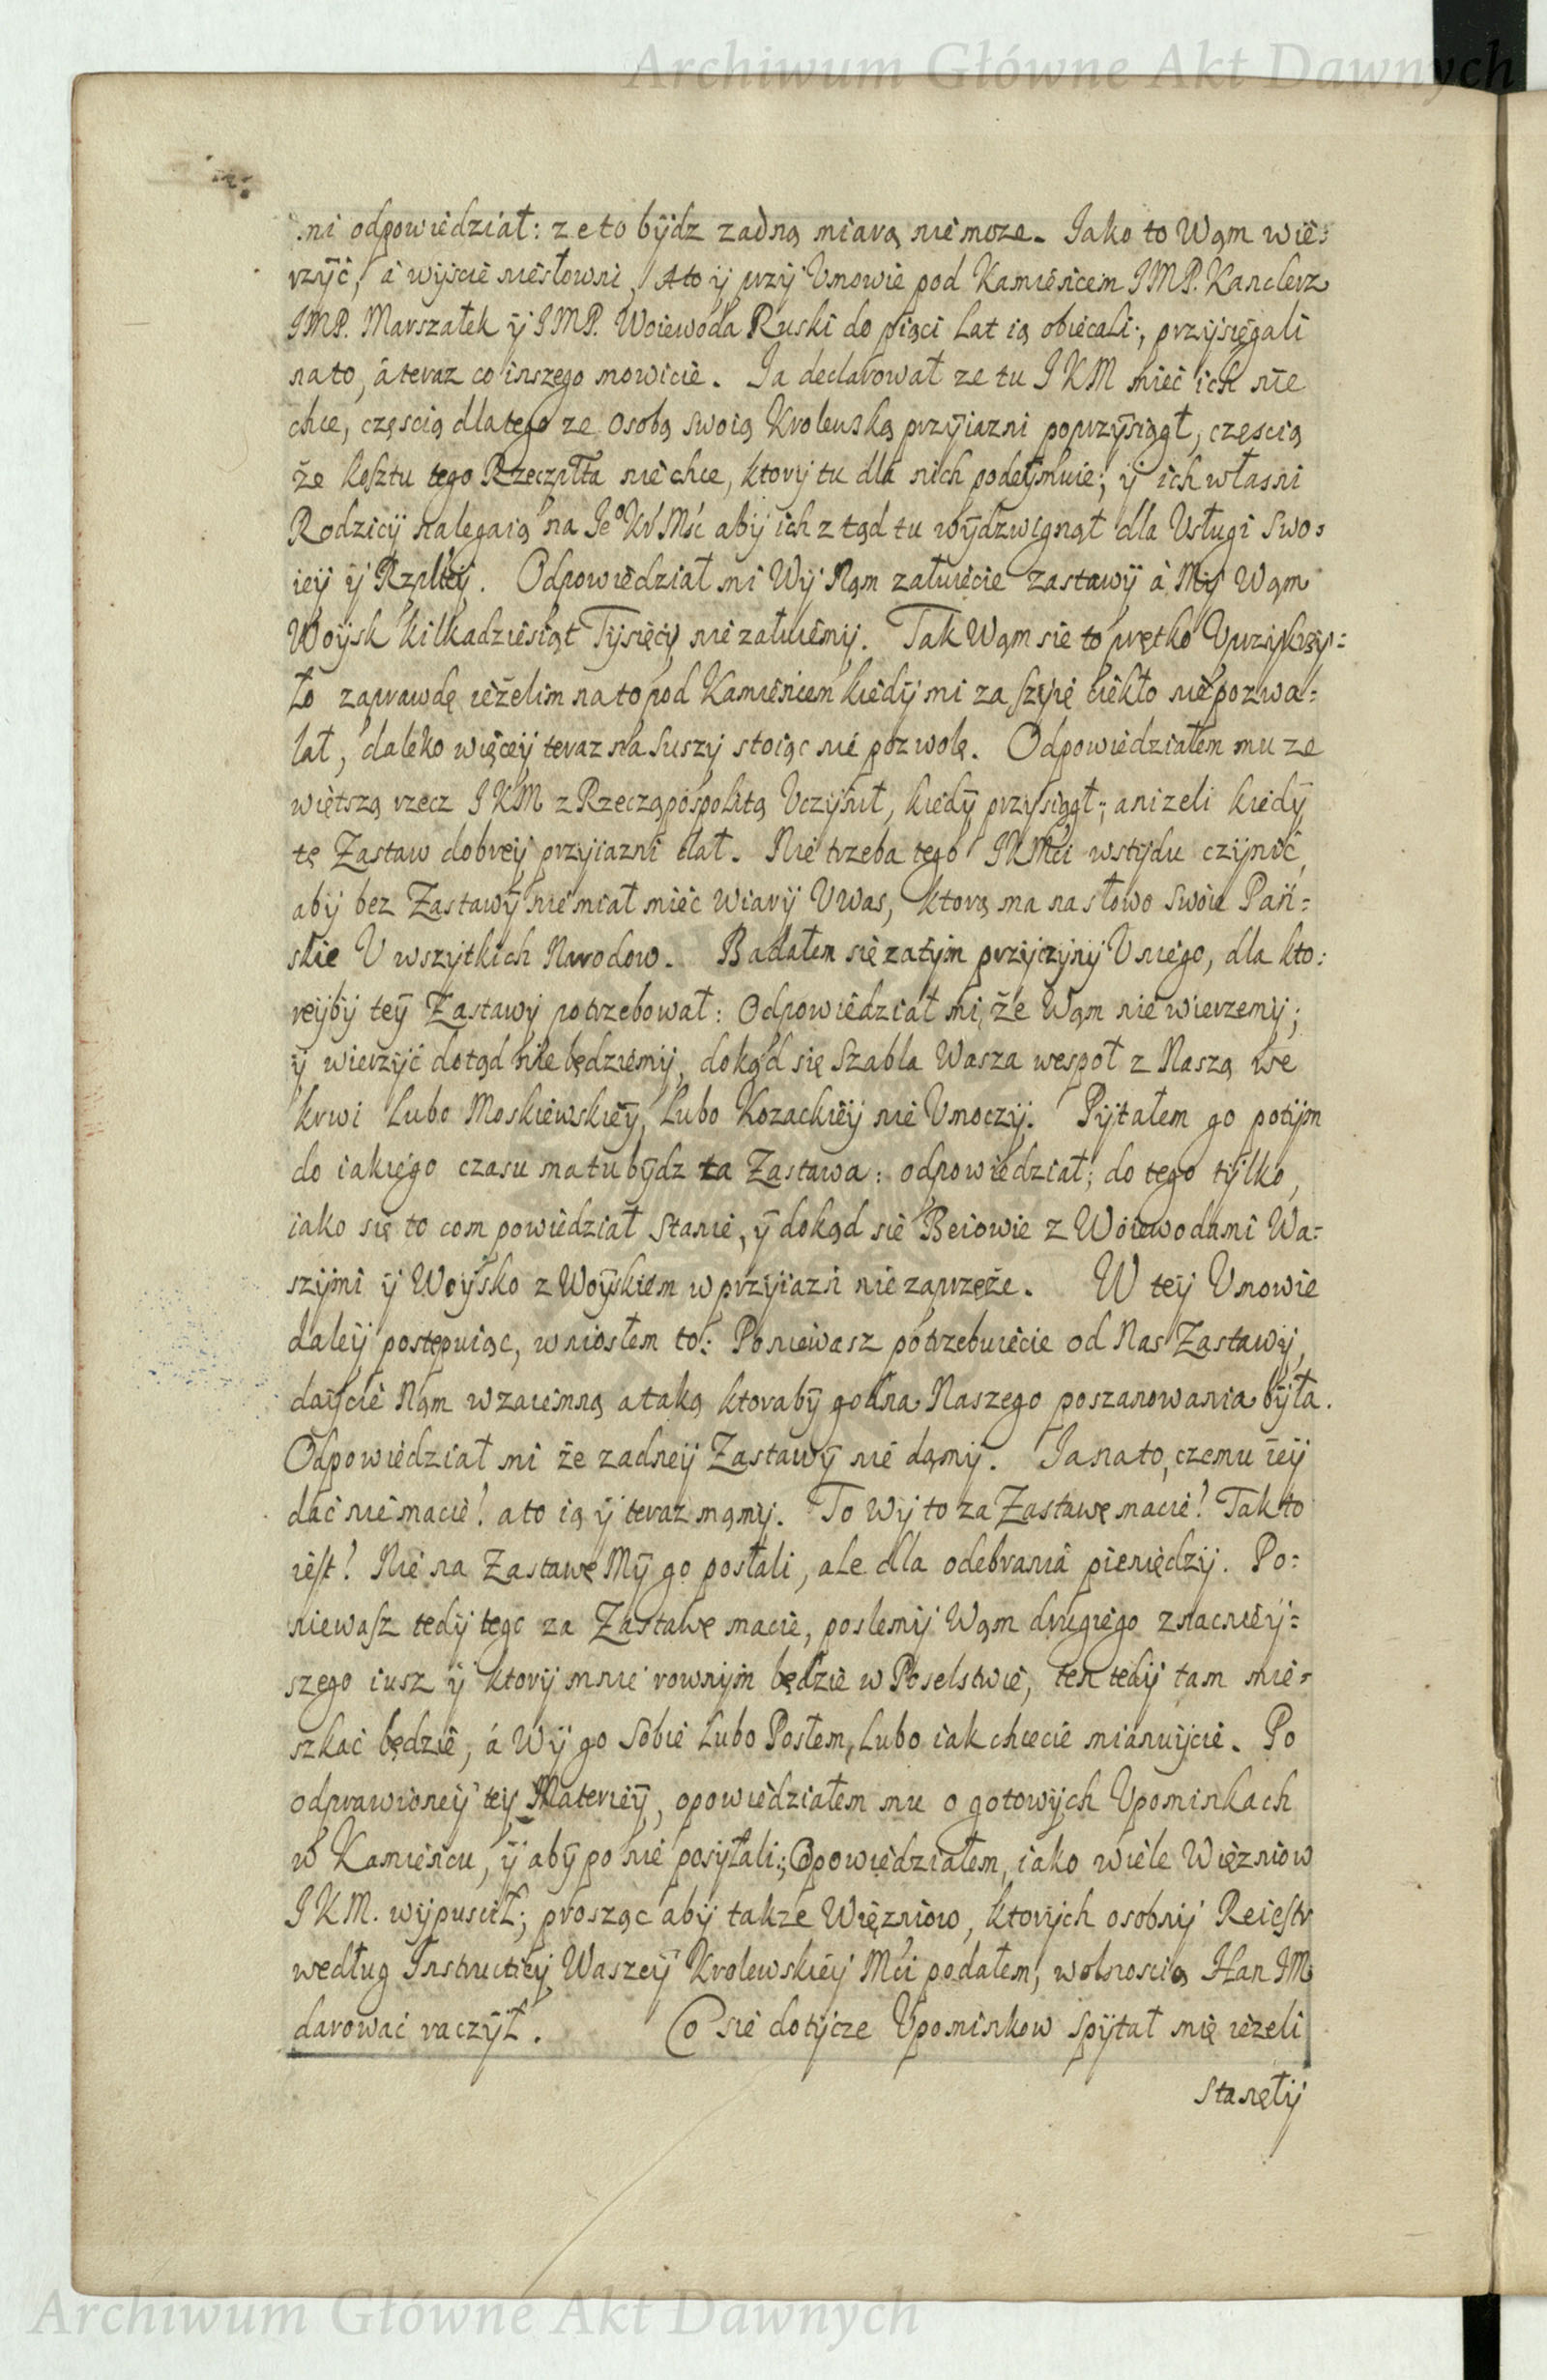 Archiwum Główne Akt Dawnych
mi odpowiedział: ze to bydz zadną miarą nie moze. Jako to Wąm wie:
rzyć, á wyście niesłowni, Ato y przy Umowie pod Kamieńcem JMP. Kanclerz
JMP. Marszałek y JMP. Woiewoda Ruski do piąci lat ią obiecali; przysięgali
na to, á teraz co inszego mowicie. Ja declarował ze tu JKM mieć ich nie
chce, częscią dla tego ze Osobą swoią Krolewską przyiazni poprzysiągł, częscią
że kosztu tego Rzeczpltа nie chce, ktory tu dla nich podeymuie; y ich własni
Rodzicy nalegaią na Jeº Kr Mść aby ich z tąd tu wydzwignął dla Usługi swo:
iey y Rzpltey. Odpowiedział mi Wy Nąm załuiecie zastawy á My Wąm
Woysk kilkadziesiąt Tysięcy nie załuiemy. Tak Wąm sie to prętko Uprzykrzy:
ło zaprawdę ieżelim na to pod Kamieńcem kiedy mi za szyię ciekło nie pozwa:
lał, daleko więcey teraz na suszy stoiąc nie pozwolę. Odpowiedziałem mu ze
więtszą rzecz JKM z Rzecząpospolitą Uczynił, kiedy przysiągł; anizeli kiedy
tę Zastaw dobrey przyiazni dał. Nie trzeba tego JKMci wstydu czynić,
aby bez Zastawy nie miał mieć wiary U was, ktorą ma na słowo swoie Pań:
skie U wszytkich Narodow. Badałem się zatym przyczyny U niego, dla kto:
reyby tey Zastawy potrzebował: Odpowiedział mi, że Wąm nie wierzemy;
y wierzyć dotąd nie będziemy, dokąd się Szabla Wasza wespoł z Naszą we
krwi Lubo Moskiewskiey, Lubo Kozackiey nie Umoczy. Pytałem go potym
do iakiego czasu ma tu bydz ta Zastawa: odpowiedział; do tego tylko,
iako się to com powiedział stanie, y dokąd sie Beiowie z Woiewodami Wa:
szymi y Woysko z Woyskiem w przyiazni nie zaprzęże. W tey Umowie
daley postępuiąc, wniosłem to: Ponieważ potrzebuiecie od Nas Zastawy,
dayćie Nąm wzaiemną a taką ktoraby godna Naszego poszanowania była.
Odpowiedział mi że zadney Zastawy nie dąmy. Ja na to, czemu iey
dać nie macie! a to ią y teraz mąmy. To Wy to za Zastawę macie! Tak to
iest! Nie na Zastawę My go posłali, ale dla odebrania pieniędzy. Po:
niewasz tedy tego za Zastawę macie, poslemy Wąm drugiego znacniey:
szego iusz y ktory mnie rownym będzie w Poselstwie, ten tedy tam mie:
szkać będzie, á Wy go sobie Lubo Posłem, Lubo iak chcecie mianuyćie. Po
odprawioney tey Materiey, opowiedziałem mu o gotowych Upominkach
w Kamieńcu, y aby po nie posyłali; Opowiedziałem, iako wiele Więzniow
JKM. wypuscił; prosząc aby takze Więzniow, ktorych osobny Reiestr
według Instructiey Waszey Krolewskiey Mci podałem, wolnoscią Han JM
darować raczył. Co sie dotycze Upominkow Spytał mię iezeli
stanęły
Archiwum Główne Akt Dawnych